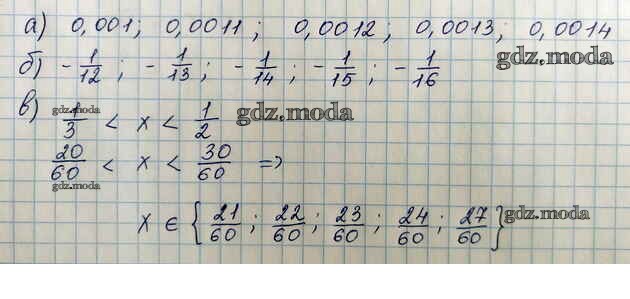 а) 0,001; 0,0011; 0,0012; 0,0013; 0,0014
gdz.moda
б) -1/12; -1/13; -1/14; -1/15; -1/16
в) 1/3 < x < 1/2
gdz.moda gdz.moda
20/60 < x < 30/60 =>
gdz.moda
x ∈ {21/60; 22/60; 23/60; 24/60; 27/60} gdz.moda